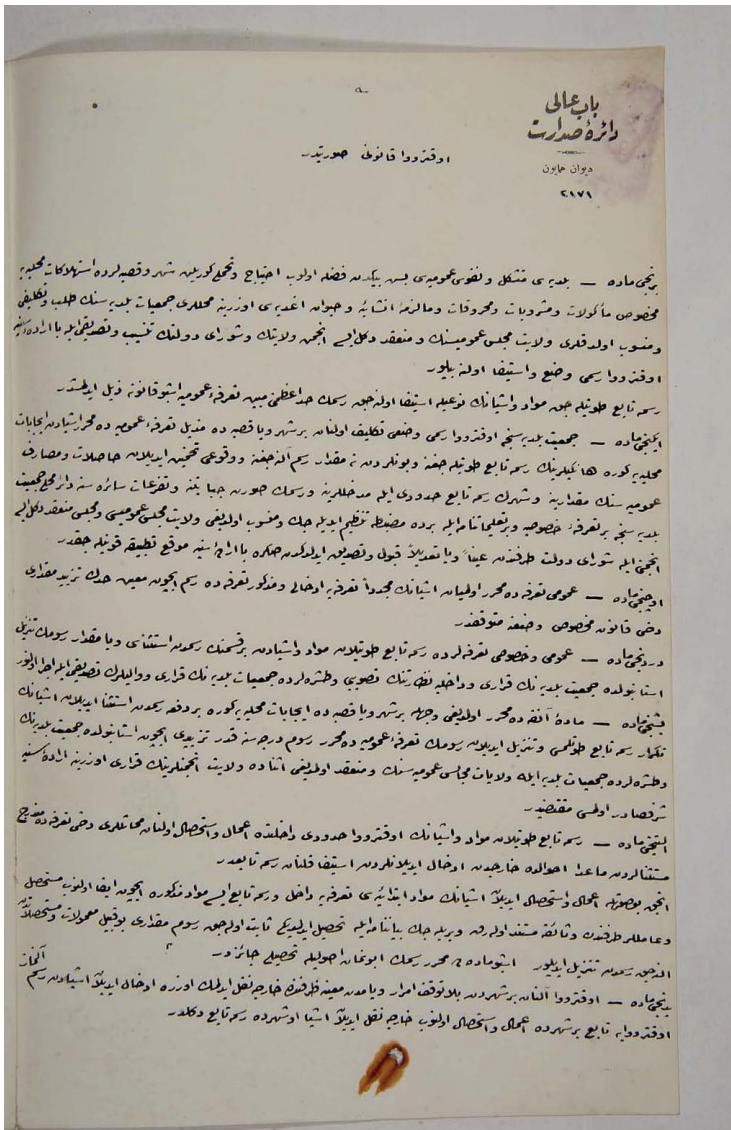 باب عالی
دائرۀ صدارت
دیوان همایون
٢١٧١
اوقترووا قانونی صورتیدر
برنجی ماده — بلدیه سی متشكل و نفوس عمومیه سی بیكدن فضله اولوب احتیاج و تحملی كوریلن شهر و قصبه لرده استهلاكات محلیه یه
مخصوص مأكولات و مشروبات و محروقات و مالزمۀ انشائیه و حیوان اغدیه سی اوزرینه محللری جمعیات بلدیه سنك طلب و تكلیفی
و منسوب اولدقلری ولایت مجلس عمومیسنك و منعقد دكل ایسه انجمن ولایتك و شورای دولتك تنسیب و تصدیقی ایله بااراده سنیه
اوقترووا رسمی وضع و استیفا اولنه بیلور
رسمه تابع طوتیله جق مواد و اشیانك نوعیله استیفا اولنه جق رسمك حد اعظمنی مبین تعرفۀ عمومیه اشبو قانونه ذیل ایدلمشدر
ایكنجی ماده — جمعیت بلدیه سنجه اوقترووا رسمی وضعی تكلیف اولنان بر شهر ویا قصبه ده مذیل تعرفۀ عمومیه ده محرر اشیادن ایجابات
محلیه یه كوره هانكیلرینك رسمه تابع طوتیله جغنه و بونلردن نه مقدار رسم آلنه جغنه و وقوعی تخمین ایدیلان حاصلات و مصارف
عمومیه سنك مقدارینه و شهرك رسمه تابع حدودی ایله مدخللرینه و رسمك صورت جبایتنه و تفرعات سائره سنه دائر محلی جمعیت
بلدیه سنجه بر تعرفۀ خصوصیه و بر تعلیماتنامه ایله برده مضبطه تنظیم ایدیله جك و منسوب اولدیغی ولایت مجلس عمومیسی و مجلس منعقد دكل ایسه
انجمنی ایله شورای دولت طرفندن عیناً ویا تعدیلاً قبول و تصدیق ایدلدكدن صكره بااراده سنیه موقع تطبیقه قونیله جقدر
اوچنجی ماده — عمومی تعرفه ده محرر اولمیان اشیانك مجدداً تعرفه یه ادخالی و مذكور تعرفه ده رسم ایچون معین حدك تزییدی مقداری
دخی قانون مخصوص وضعنه متوقفدر
دردنجی ماده — عمومی و خصوصی تعرفه لرده رسمه تابع طوتیلان مواد و اشیادن بر قسمنك رسمدن استثناسی ویا مقدار رسومك تنزیلی
استانبولده جمعیت بلدیه نك قراری و داخلیه نظارتنك تصویبی و طشره لرده جمعیات بلدیه نك قراری و والیلرك تصدیقی ایله اجرا اولنور
بشنجی ماده — مادۀ آنفه ده محرر اولدیغی وجهله بر شهر ویا قصبه ده ایجابات محلیه یه كوره بر دفعه رسمدن استثنا ایدیلان اشیانك
تكرار رسمه تابع طوتلمسی و تنزیل ایدیلان رسومك تعرفۀ عمومیه ده محرر رسوم درجه سنه قدر تزییدی ایچون استانبولده جمعیت بلدیه نك
و طشره لرده جمعیات بلدیه ایله ولایات مجالس عمومیه سنك و منعقد اولمدیغی اثناده ولایت انجمنلرینك قراری اوزرینه ارادۀ سنیه
شرفصادر اولمسی مقتضیدر
التنجی ماده — رسمه تابع طوتیلان مواد و اشیانك اوقترووا حدودی داخلنده اعمال و استحصال اولنان مماثللری دخی تعرفه ده مندرج
مستثنالردن ماعدا احوالده خارجدن ادخال ایدیلانلردن استیفا قلنان رسمه تابعدر
انجق بو صورتله اعمال و استحصال ایدیلان اشیانك مواد ابتدائیه سی تعرفه یه داخل و رسمه تابع ایسه مواد مذكوره ایچون ایفا اولنوب مستحصل
و عاملر طرفندن وثائقه مستند اوله رق ویریله جك بیاننامه ایله تحصیل ایدلدیكی ثابت اوله جق رسوم مقداری بو قبیل معمولات و مستحصلاتدن
النه جق رسمدن تنزیل ایدیلور اشبو ماده ده محرر رسمك ابونمان اصولیله تحصیلی جائزدر
یدنجی ماده — اوقترووا آلنان بر شهردن بلا توقف امرار ویا مدت معینه ظرفنده خارجه نقل ایدلمك اوزره ادخال ایدیلان اشیادن رسم آلنماز
اوقتروویه تابع بر شهرده اعمال و استحصال اولنوب خارجه نقل ایدیلان اشیا او شهرده رسمه تابع دكلدر